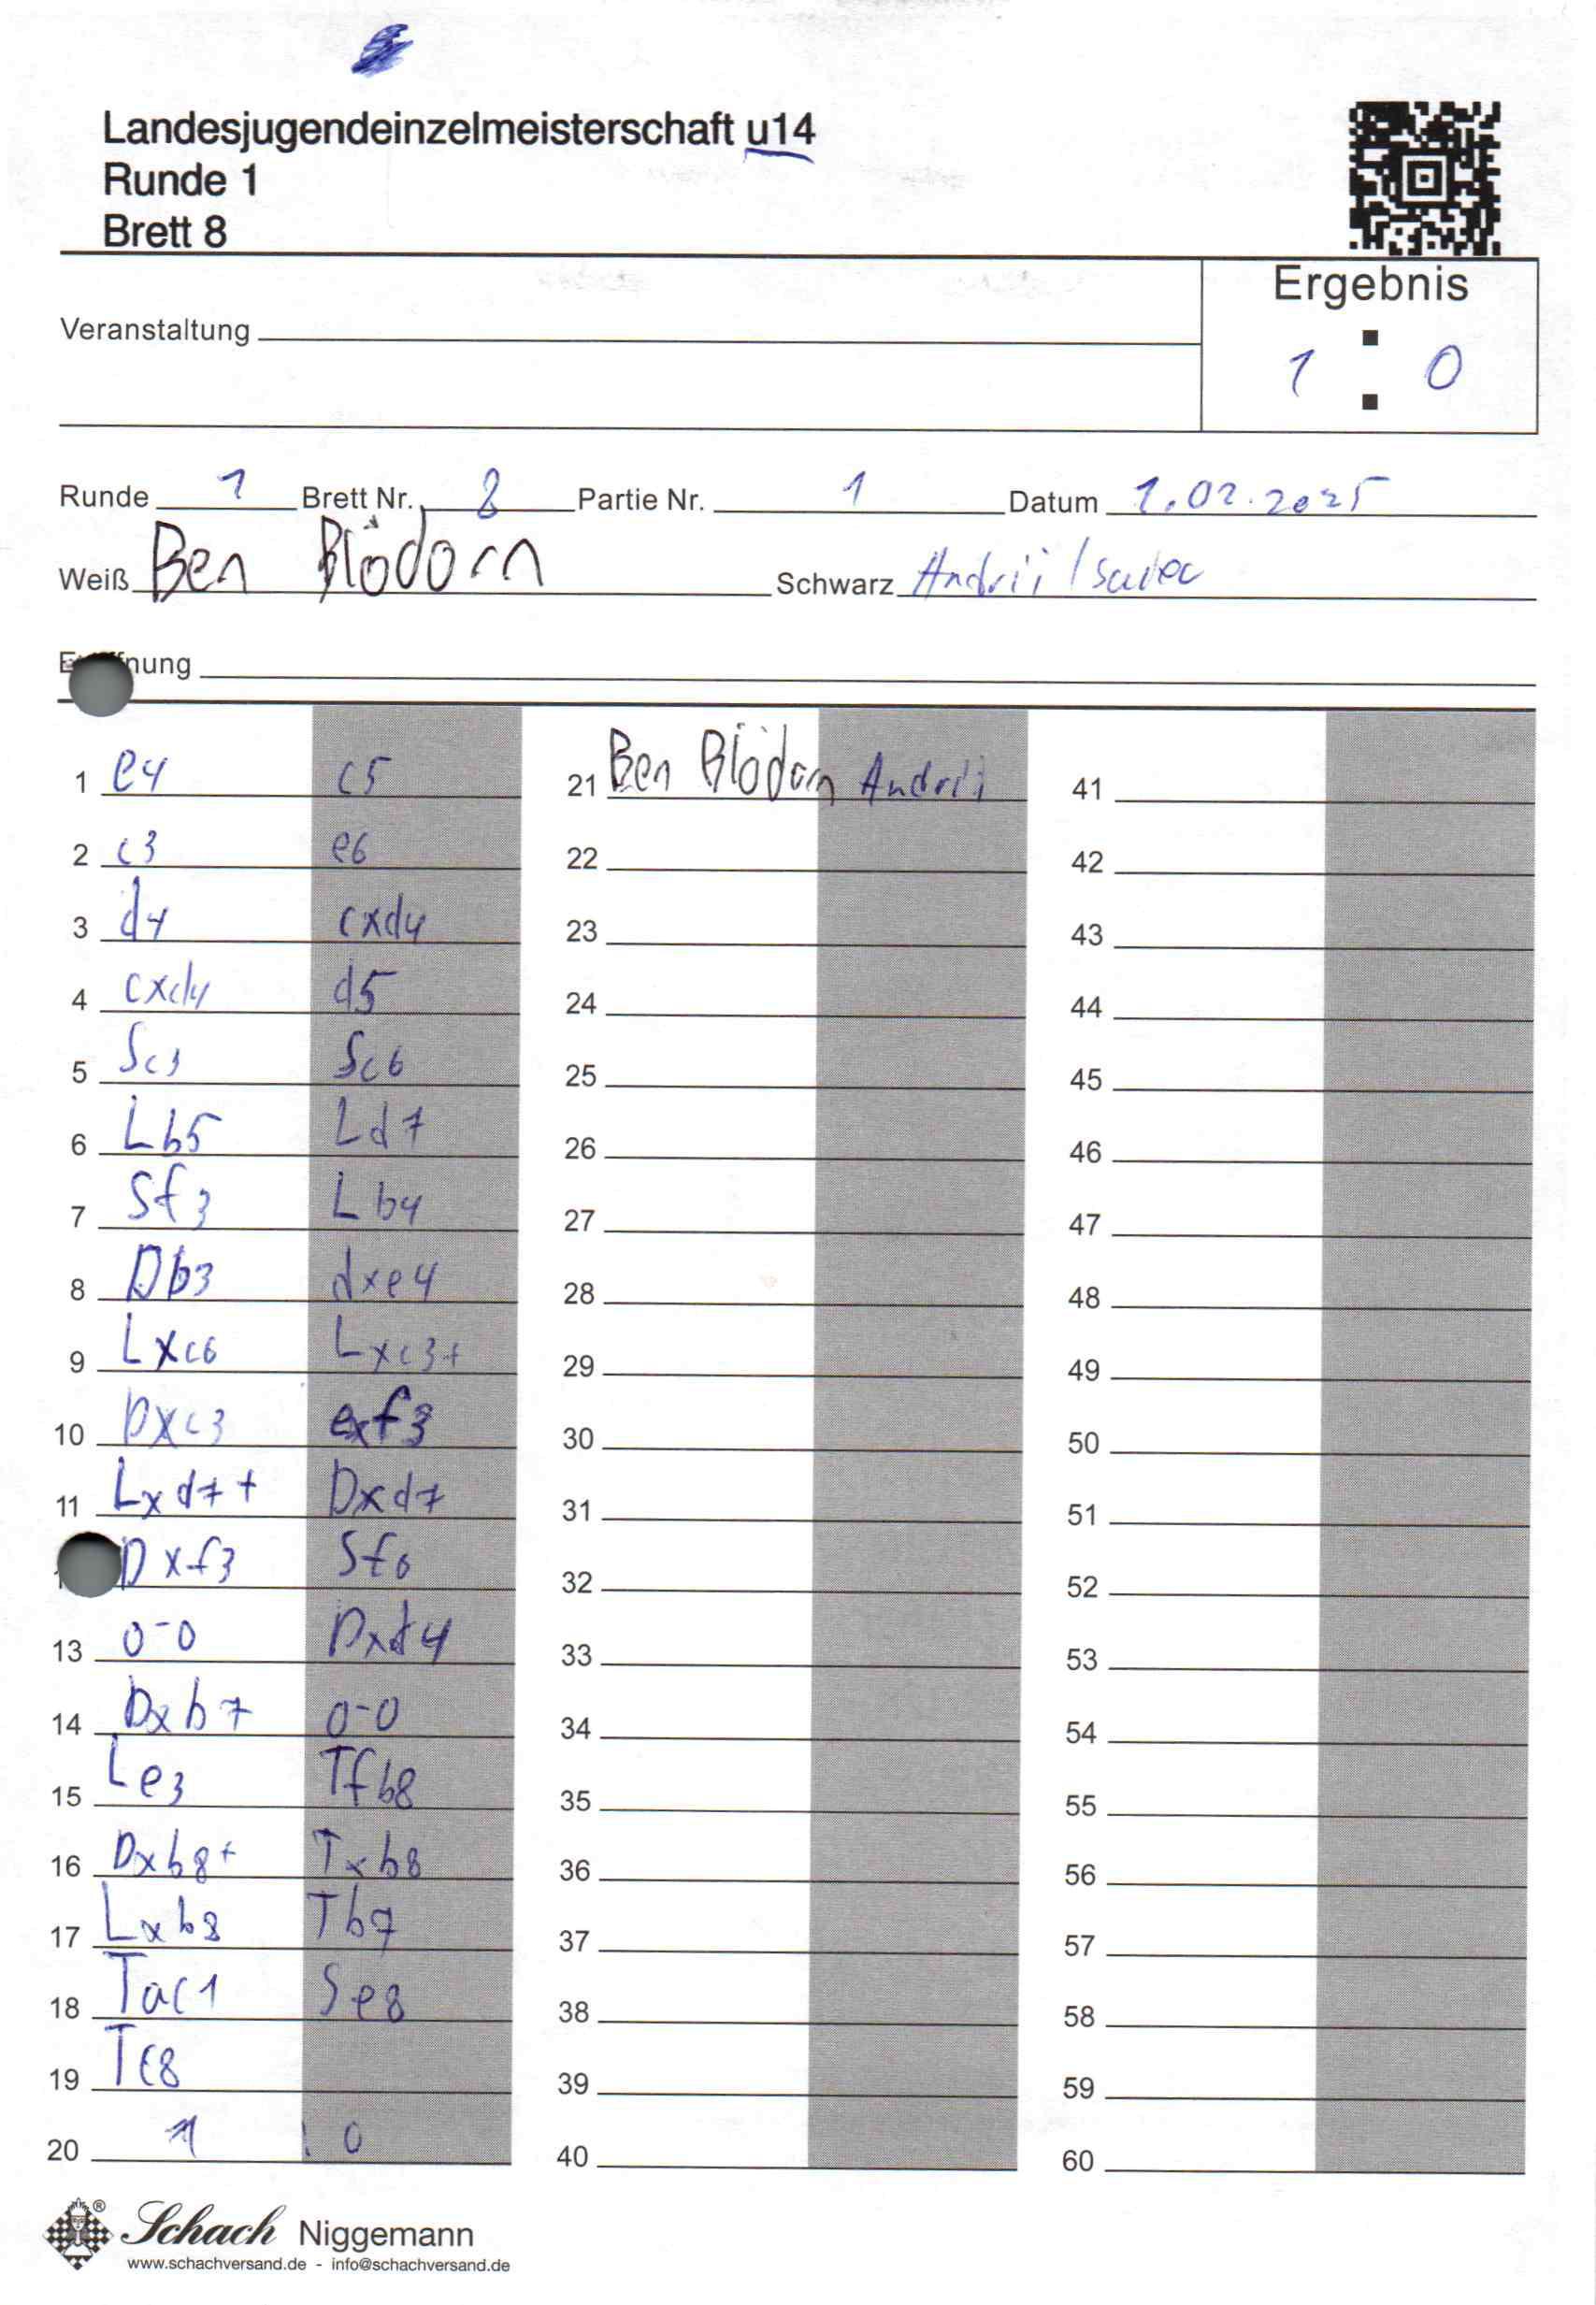 Landesjugendeinzelmeisterschaft u14
Runde 1
Brett 8
Ergebnis
1 : 0
Veranstaltung
Runde 1 Brett Nr. 8 Partie Nr. 1 Datum 1.02.2025
Weiß Ben Blödorn Schwarz Andrii
nung
1 e4 c5
2 c3 e6
3 d4 cxd4
4 cxd4 d5
5 Sc3 Sc6
6 Lb5 Ld7
7 Sf3 Lb4
8 Db3 dxe4
9 Lxc6 Lxc3+
10 Dxc3 exf3
11 Lxd7+ Dxd7
Dxf3 Sf6
13 0-0 Dxd4
14 Dxb7 0-0
15 Le3 Tfb8
16 Dxb8+ Txb8
17 Lxb8 Tb7
18 Tac1 Se8
19 Tc8
20 1 : 0
21 Ben Blödorn Andrii
22
23
24
25
26
27
28
29
30
31
32
33
34
35
36
37
38
39
40
41
42
43
44
45
46
47
48
49
50
51
52
53
54
55
56
57
58
59
60
Schach Niggemann
www.schachversand.de - info@schachversand.de